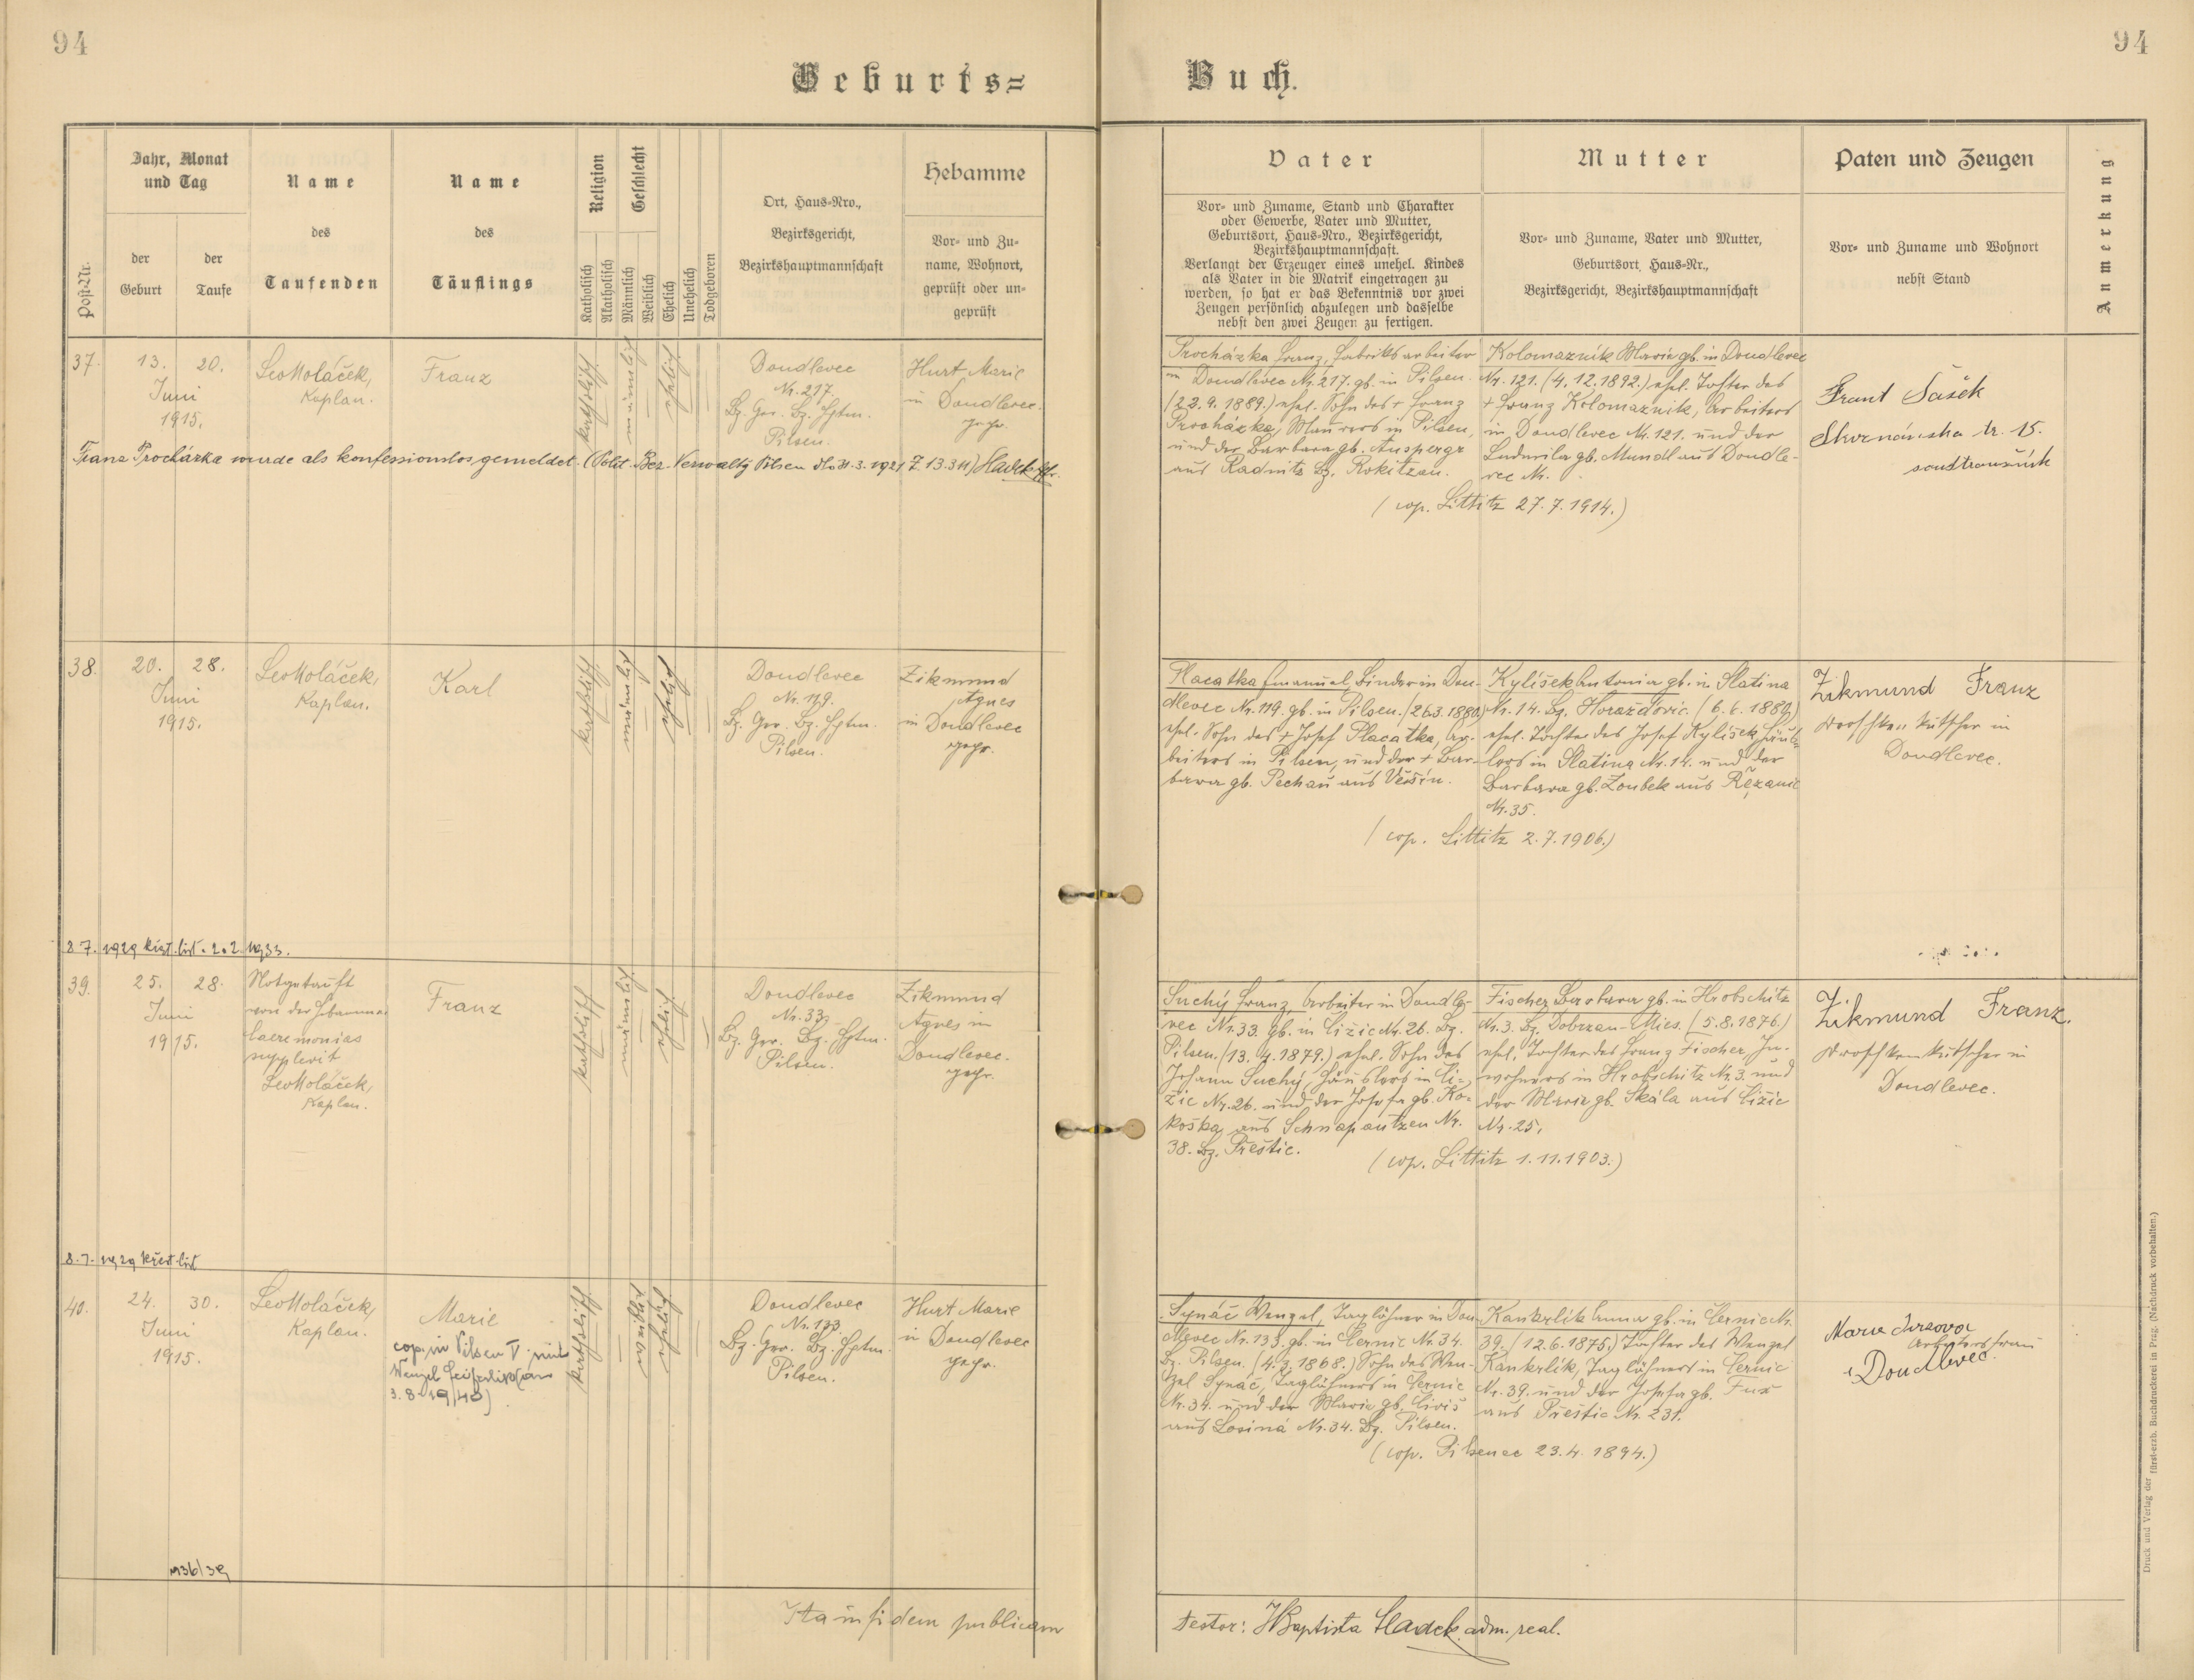 94
94
Geburts=
Buch.
Post-Nr.
Jahr, Monat
und Tag
der
Geburt
der
Taufe
Name
des
Taufenden
Name
des
Täuflings
Religion
Katholisch
Akatholisch
Geschlecht
Männlich
Weiblich
Ehelich
Unehelich
Todgeboren
Ort, Haus=Nro.,
Bezirksgericht,
Bezirkshauptmannschaft
Hebamme
Vor= und Zu=
name, Wohnort,
geprüft oder un=
geprüft
Vater
Vor= und Zuname, Stand und Charakter
oder Gewerbe, Vater und Mutter,
Geburtsort, Haus=Nro., Bezirksgericht,
Bezirkshauptmannschaft.
Verlangt der Erzeuger eines unehel. Kindes
als Vater in die Matrik eingetragen zu
werden, so hat er das Bekenntnis vor zwei
Zeugen persönlich abzulegen und dasselbe
nebst den zwei Zeugen zu fertigen.
Mutter
Vor= und Zuname, Vater und Mutter,
Geburtsort, Haus=Nr.,
Bezirksgericht, Bezirkshauptmannschaft
Paten und Zeugen
Vor= und Zuname und Wohnort
nebst Stand
Anmerkung
37.
13.
20.
Juni
1915.
Leo Koláček,
Kaplan.
Franz
katholisch
männlich
ehelich
Doudlevec
Nr. 217.
Bz. Ger. Bz. Hptm.
Pilsen.
Hurt Marie
in Doudlevec.
gepr.
Franz Procházka wurde als konfessionslos gemeldet. (Polit. Bez. Verwaltg Pilsen 31.3.1921 Z. 13.311) Hladek
Procházka Franz, Fabriksarbeiter
in Doudlevec Nr. 217. gb. in Pilsen.
(22.9.1889.) ehel. Sohn des + Franz
Procházka, Maurers in Pilsen,
und der Barbara gb. Auspergr
aus Radnitz Bz. Rokitzan.
Kolomazník Marie gb. in Doudlevec
Nr. 121. (4.12.1892.) ehel. Tochter des
+ Franz Kolomazník, Arbeiters
in Doudlevec Nr. 121. und der
Ludmila gb. Mundl aus Doudle-
vec Nr.
(cop. Littitz 27.7.1914.)
Frant Šašek
tr. 15.
38.
20.
28.
Juni
1915.
Leo Koláček,
Kaplan.
Karl
katholisch
männlich
ehelich
Doudlevec
Nr. 119.
Bz. Ger. Bz. Hptm.
Pilsen.
Zikmund
Agnes
in Doudlevec
gepr.
Placatka Emanuel, Binder in Dou-
dlevec Nr. 119. gb. in Pilsen. (26.3.1880.)
ehel. Sohn des + Josef Placatka, Ar-
beiters in Pilsen, und der + Bar-
bara gb. Pechau aus
Kylíšek Antonia gb. in Slatina
Nr. 14. Bz. Horažďovic. (6.6.1880.)
ehel. Tochter des Josef Kylíšek, Häus-
lers in Slatina Nr. 14. und der
Barbara gb. Zoubek aus Řezanic
Nr. 35.
(cop. Littitz 2.7.1906.)
Zikmund Franz
Droschkenkutscher in
Doudlevec.
8.7. 1929 křest. list. 2.2. 1933.
39.
25.
28.
Juni
1915.
Notgetauft
von der Hebamme
Caeremonias
supplevit
Leo Koláček,
Kaplan.
Franz
katholisch
männlich
ehelich
Doudlevec
Nr. 33.
Bz. Ger. Bz. Hptm.
Pilsen.
Zikmund
Agnes in
Doudlevec.
gepr.
Suchý Franz, Arbeiter in Doudle-
vec Nr. 33. gb. in Čižic Nr. 26. Bz.
Pilsen. (13.4.1879.) ehel. Sohn des
Johann Suchý, Häuslers in Či-
žic Nr. 26. und der Josefa gb. Ko-
koška aus Schnapautzen Nr.
38. Bz. Přestic.
Fischer Barbara gb. in Hrobschitz
Nr. 3. Bz. Dobrzan-Mies. (5.8.1876.)
ehel. Tochter des Franz Fischer, In-
wohners in Hrobschitz Nr. 3. und
der Maria gb. Skála aus Čižic
Nr. 25.
(cop. Littitz 1.11.1903.)
Zikmund Franz.
Droschkenkutscher in
Doudlevec.
8.7. 1929 křest list
40.
24.
30.
Juni
1915.
Leo Koláček,
Kaplan.
Marie
cop. in Pilsen V. mit
Wenzel
3.8.1940)
katholisch
weiblich
ehelich
Doudlevec
Nr. 133.
Bz. Ger. Bz. Hptm.
Pilsen.
Hurt Marie
in Doudlevec
gepr.
Synáč Wenzel, Taglöhner in Dou-
dlevec Nr. 133. gb. in Černic Nr. 34.
Bz. Pilsen. (4.3.1868.) Sohn des Wen-
zel Synáč, Taglöhners in Černic
Nr. 34. und der Marie gb. Civiš
aus Losiná Nr. 34. Bz. Pilsen.
Kankrlík Anna gb. in Černic Nr.
39. (12.6.1875.) Tochter des Wenzel
Kankrlík, Taglöhners in Černic
Nr. 39. und der Josefa gb. Fux
aus Přestic Nr. 231.
(cop. Pilsenec 23.4.1894.)
Marie
Arbeitersfrau
Doudlevec.
1936/39
Ita in fidem publicam
testor: JBaptista Hladek adm. real.
Druck und Verlag der fürst-erzb. Buchdruckerei in Prag. (Nachdruck vorbehalten.)